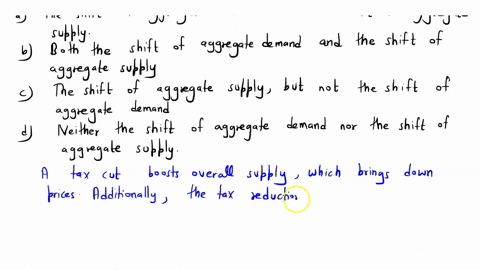 supply.
b) Both the shift of aggregate demand and the shift of
aggregate supply
c) The shift of aggregate supply, but not the shift of
aggregate demand
d) Neither the shift of aggregate demand nor the shift of
aggregate supply.
A tax cut boosts overall supply, which brings down
prices. Additionally, the tax reduction